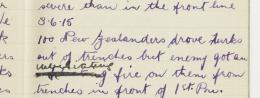 severe than in the front line
3/6/15
100 New Zealanders drove turks
out of trenches but enemy got an
enfilading fire on them from
trenches in front of 1st Pn.